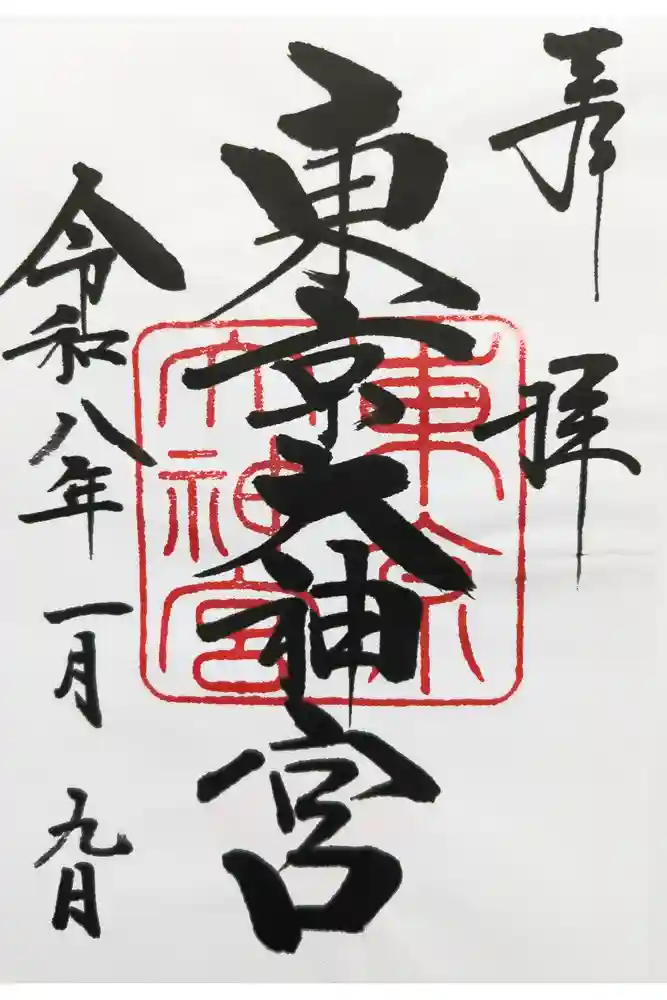 奉
拝
東京大神宮
令和八年一月九日
東京
大神宮